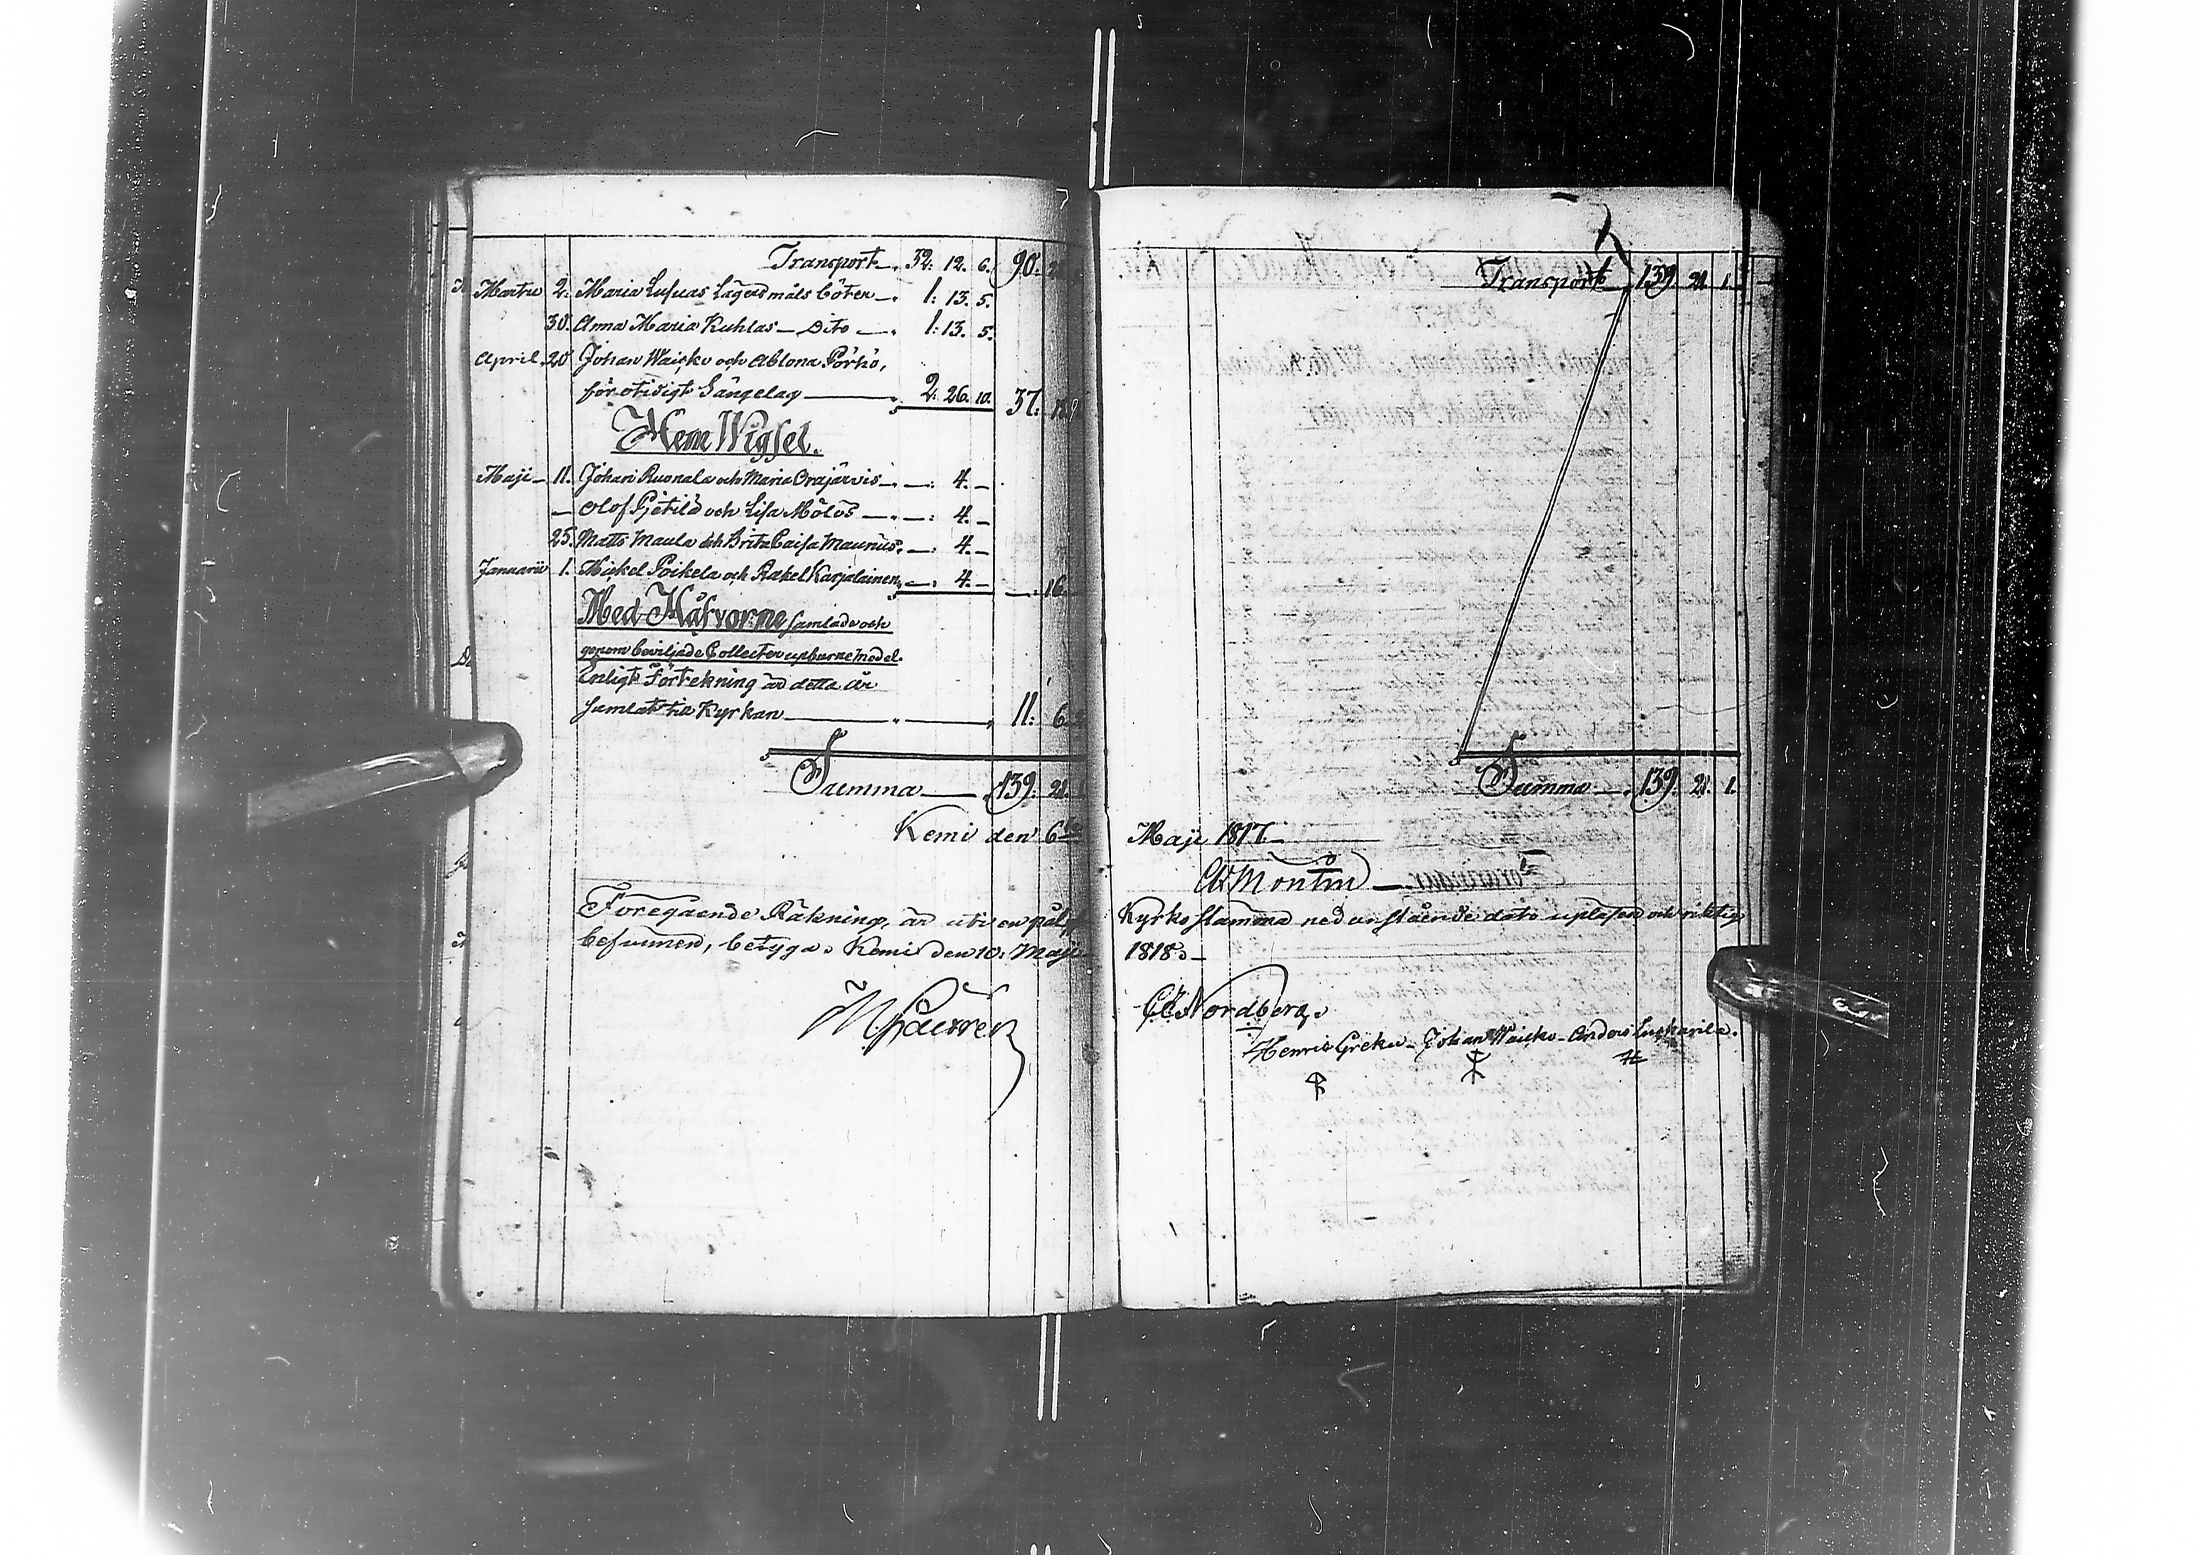 Transport 32. 12. 6. 90.
Martii 2. Maria Lusuas Lägersmåls böter 1. 13. 5.
30. Anna Maria Kuhlas Dito 1: 13. 5.
April. 20 Johan Waisko och Ablona Pörhö,
för otidigt Sängelag 2. 26. 10. 37:
Hem Wigsel.
Maji 11. Johan Ruonala och Maria Orajärvis 4.
Olof och Lisa 4.
25. Matts Maula och Brita Caisa Maunus 4.
Januarii 1. Mickel Poikela och Rakel Karjalainen 4. 16.
Med Håfvorne samlade och
genom beviljade Collecter upburne Medel.
Enligt Förtekning är detta år
samlat till Kyrkan 11: 6.
Summa 139: 21.
Kemi den 6
Föregående Räkning, är uti en pålyst
befunnen, betygar Kemi den 10. Maji
Transport 139. 21. 1.
Summa 139. 21. 1.
Maji 1817.
Montin
Kyrkostämma nedanstående dato upläsen och riktig
1818.
Nordberg.
Henric Greku Johan Waisko Anders